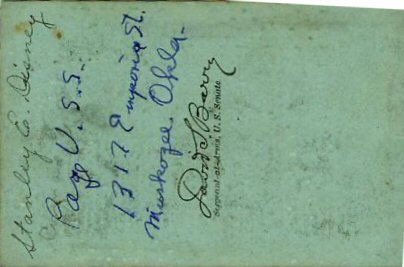 Stanley E. Disney
Page U. S. S.
1317 Emporia St.
Muskogee. Okla-
David S Barry
Sergeant-at-Arms, U. S. Senate.